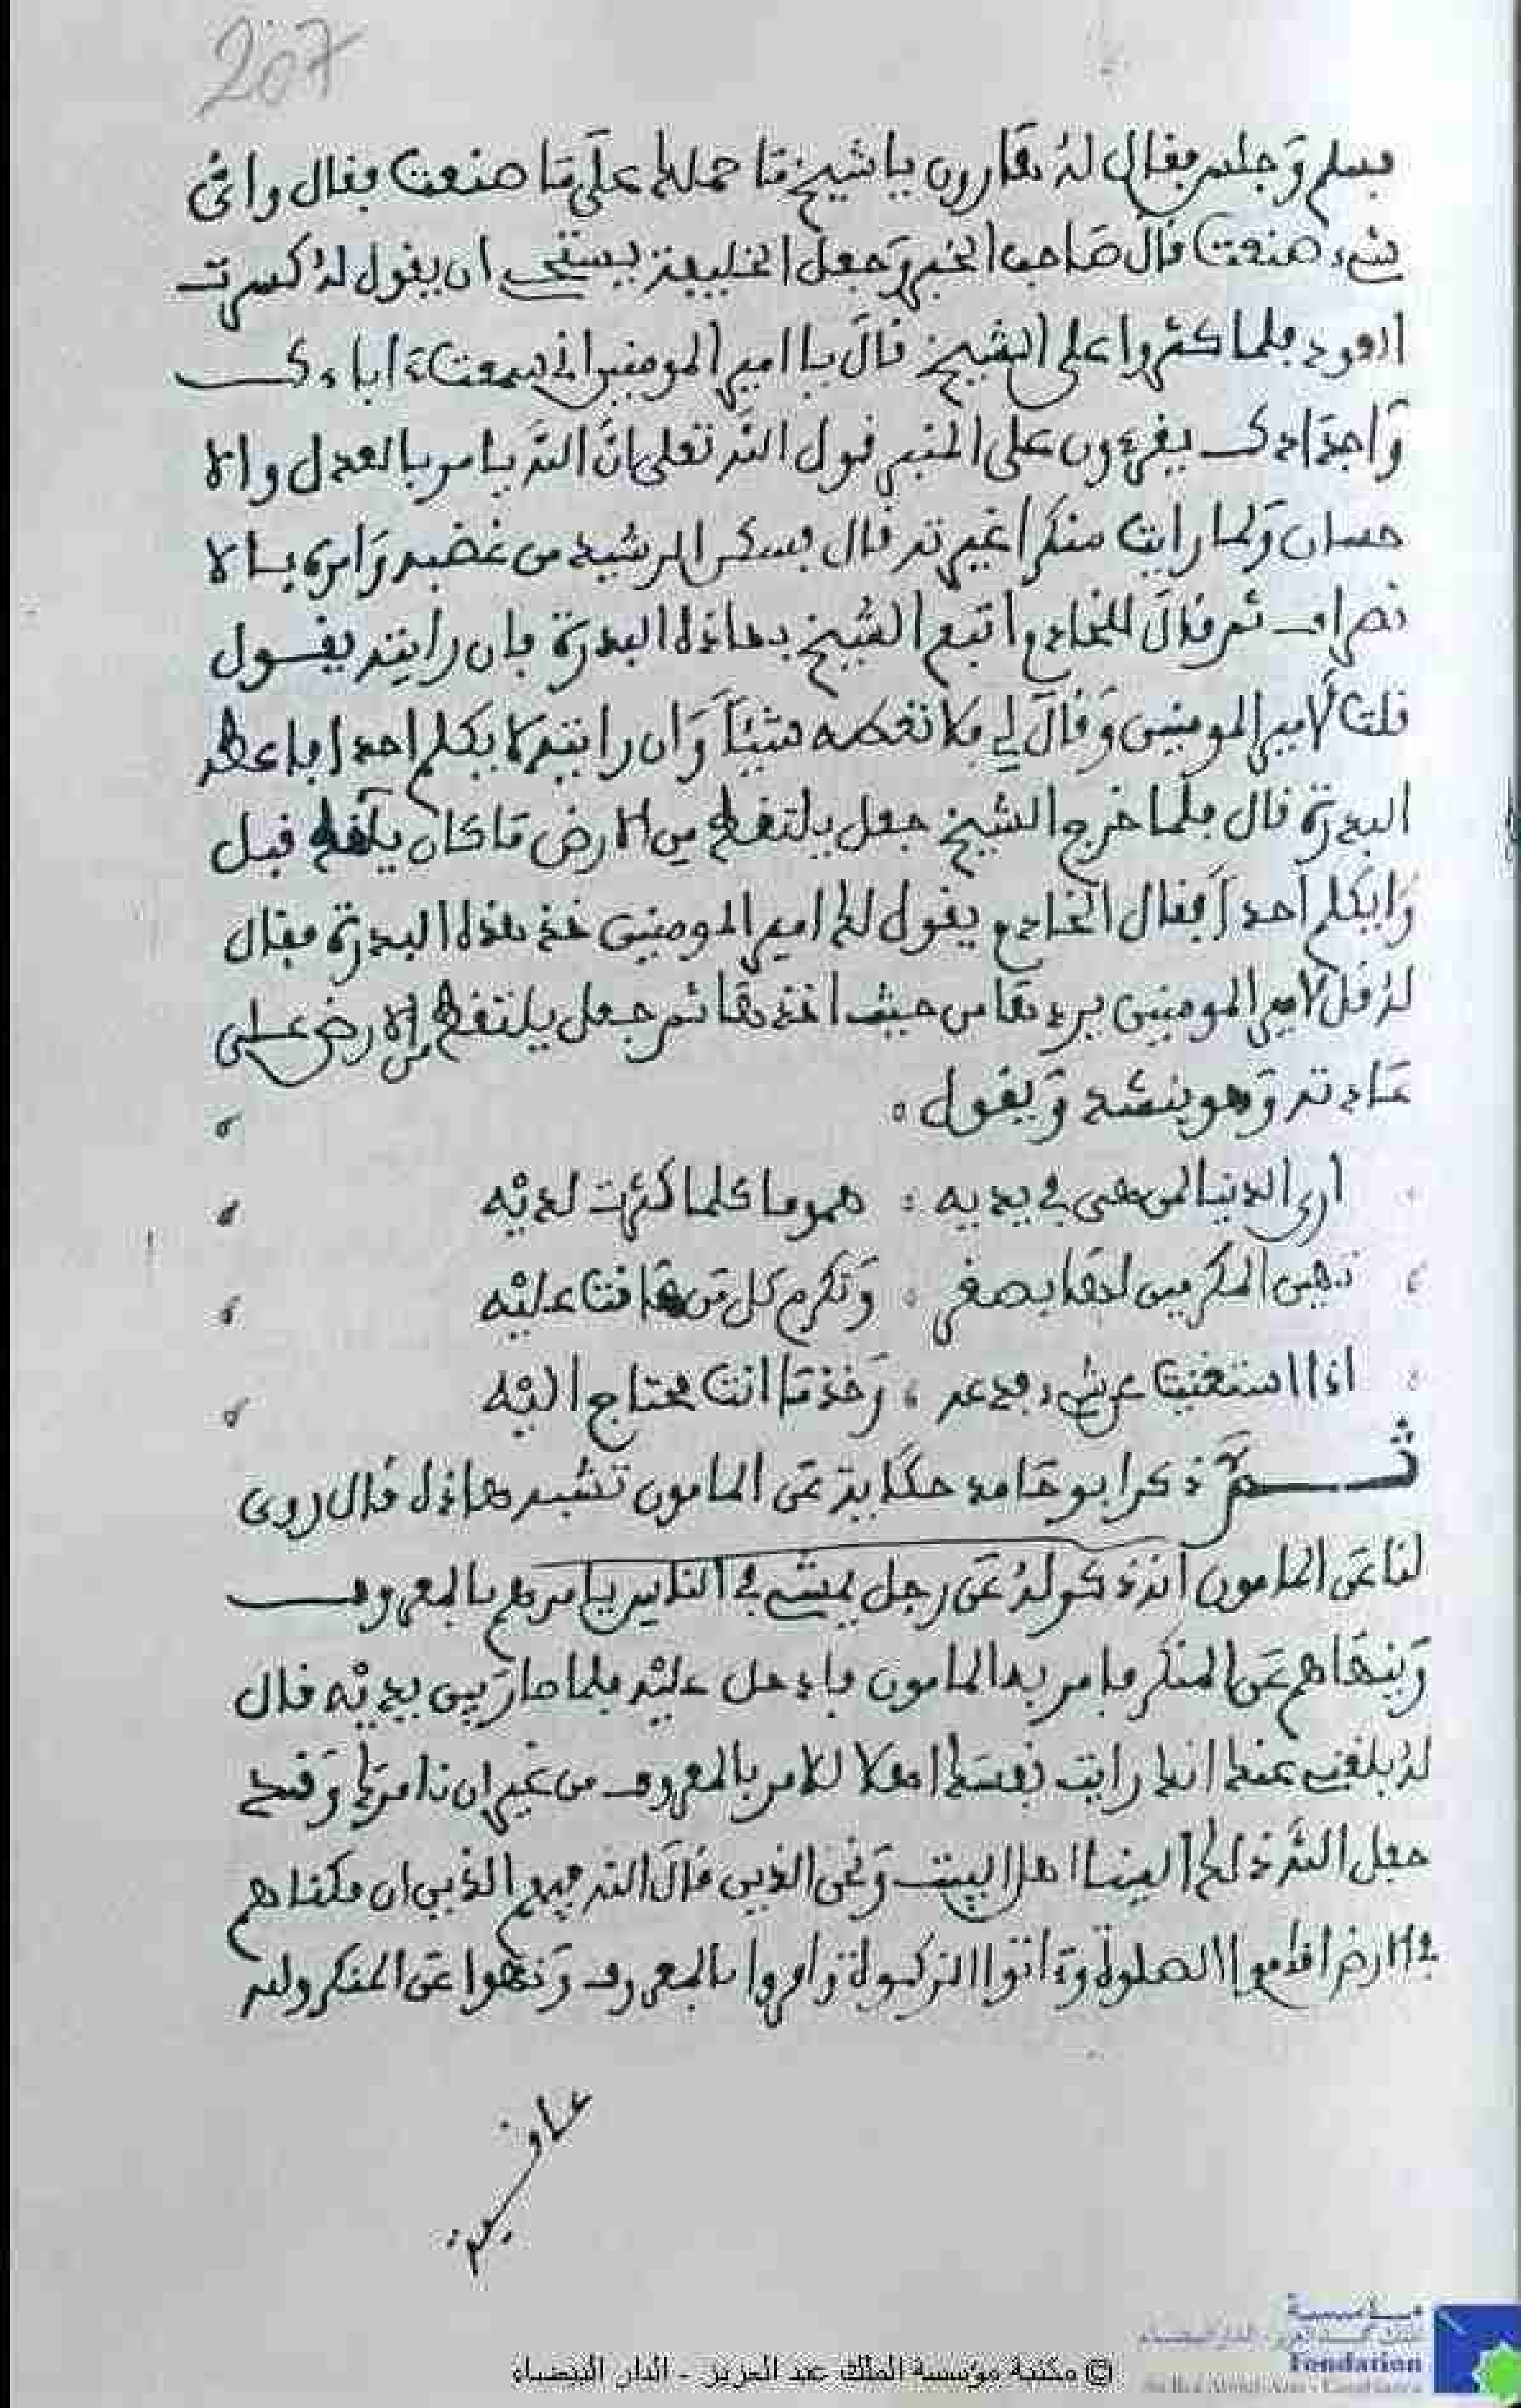 207
فسلم وجلس فقال له هارون يا شيخ ما حملك على ما صنعت فقال وائ
شىء صنعت قال صاحب الخبر وجعل الخليفة يستحى ان يقول له كسرت
العود فلما كثروا على الشيخ قال يا امير المومنين انى سمعت ءاباءك
واجدادك يقرءون على المنبر قول الله تعلى ان الله يامر بالعدل والا
حسان ولما رايت منكرا غيرته قال فسكن الرشيد من غضبه وامره بالا
نصراف ثم قال للخادم اتبع الشيخ بهاذه البدرة فان رايته يقول
قلت لامير المومنين وقال لي فلا تعطه شيئا وان رايته لا يكلم احدا فاعطه
البدرة قال فلما خرج الشيخ جعل يلتقط من الارض ما كان يلقط قبل
ولا يكلم احدا فقال الخادم يقول لك امير المومنين خذ هذه البدرة فقال
له قل لامير المومنين يردها من حيث اخذها ثم جعل يلتقط من الارض على
عادته وهو ينشد ويقول
ارى الدنيا لمن هى في يديه : هموما كلما كثرت لديه
تهين المكرمين لها بصغر : وتكرم كل من هانت عليه
اذا استغنيت عن شىء فدعه : وخذ ما انت محتاج اليه
ثم ذكر ابو حامد حكاية عن المامون تشبه هاذه قال روى
لنا عن المامون انه ذكر له عن رجل يمشى في الناس يامرهم بالمعروف
وينهاهم عن المنكر فامر به المامون فادخل عليه فلما صار بين يديه قال
له بلغنى عنك انك رايت نفسك اهلا للامر بالمعروف من غير ان نامرك وقد
جعل الله ذلك الينا اهل البيت ونحن الذين قال الله فيهم الذين ان مكناهم
في الارض اقاموا الصلوة وءاتوا الزكوة وامروا بالمعروف ونهوا عن المنكر ولله
عاقبة
© مكتبة مؤسسة الملك عبد العزيز - الدار البيضاء
مؤسسة
الملك عبد العزيز - الدار البيضاء
Fondation
du Roi Abdul-Aziz - Casablanca